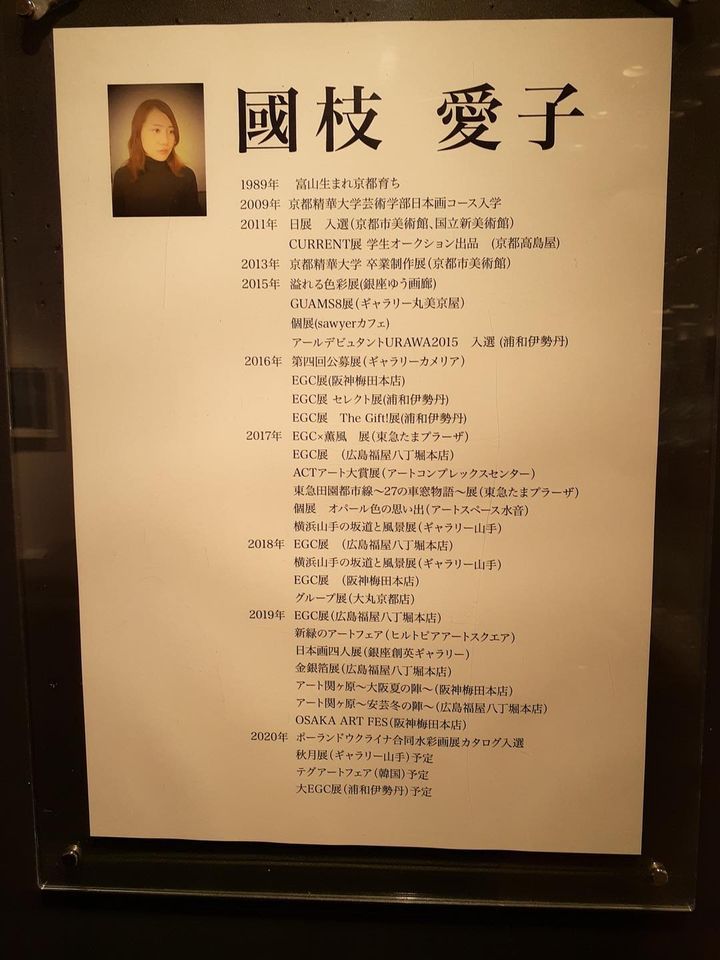 國枝 愛子
1989年 富山生まれ京都育ち
2009年 京都精華大学芸術学部日本画コース入学
2011年 日展 入選(京都市美術館、国立新美術館)
CURRENT展 学生オークション出品 (京都高島屋)
2013年 京都精華大学 卒業制作展(京都市美術館)
2015年 溢れる色彩展(銀座ゆう画廊)
GUAMS8展(ギャラリー丸美京屋)
個展(sawyerカフェ)
アールデビュタントURAWA2015 入選 (浦和伊勢丹)
2016年 第四回公募展(ギャラリーカメリア)
EGC展(阪神梅田本店)
EGC展 セレクト展(浦和伊勢丹)
EGC展 The Gift!展(浦和伊勢丹)
2017年 EGC×薫風 展(東急たまプラーザ)
EGC展 (広島福屋八丁堀本店)
ACTアート大賞展(アートコンプレックスセンター)
東急田園都市線〜27の車窓物語〜展(東急たまプラーザ)
個展 オパール色の思い出(アートスペース水音)
横浜山手の坂道と風景展(ギャラリー山手)
2018年 EGC展 (広島福屋八丁堀本店)
横浜山手の坂道と風景展(ギャラリー山手)
EGC展 (阪神梅田本店)
グループ展(大丸京都店)
2019年 EGC展(広島福屋八丁堀本店)
新緑のアートフェア(ヒルトピアアートスクエア)
日本画四人展(銀座創英ギャラリー)
金銀箔展(広島福屋八丁堀本店)
アート関ヶ原〜大阪夏の陣〜(阪神梅田本店)
アート関ヶ原〜安芸冬の陣〜(広島福屋八丁堀本店)
OSAKA ART FES(阪神梅田本店)
2020年 ポーランドウクライナ合同水彩画展カタログ入選
秋月展(ギャラリー山手)予定
テグアートフェア(韓国)予定
大EGC展(浦和伊勢丹)予定